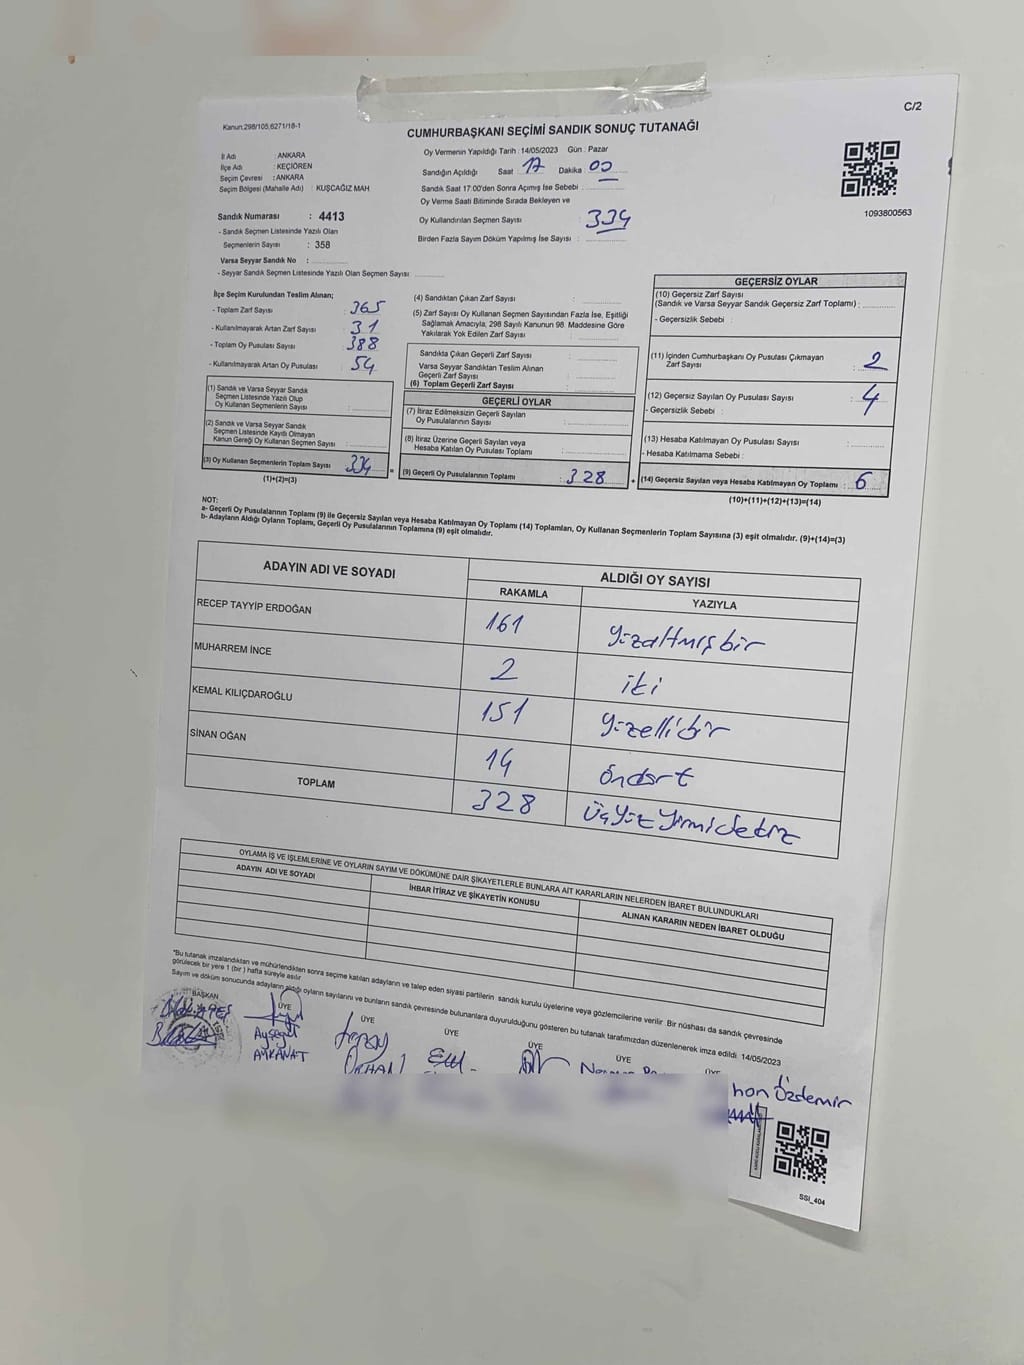 C/2
Kanun:298/105,6271/18-1
CUMHURBAŞKANI SEÇİMİ SANDIK SONUÇ TUTANAĞI
İl Adı : ANKARA
İlçe Adı : KEÇİÖREN
Seçim Çevresi : ANKARA
Seçim Bölgesi (Mahalle Adı) : KUŞCAĞIZ MAH
Oy Vermenin Yapıldığı Tarih : 14/05/2023 Gün : Pazar
Sandığın Açıldığı Saat 17 Dakika 00
Sandık Saat 17:00'den Sonra Açımış İse Sebebi
Oy Verme Saati Bitiminde Sırada Bekleyen ve
Oy Kullandırılan Seçmen Sayısı : 334
Birden Fazla Sayım Döküm Yapılmış İse Sayısı :
1093800563
Sandık Numarası : 4413
- Sandık Seçmen Listesinde Yazılı Olan
Seçmenlerin Sayısı : 358
Varsa Seyyar Sandık No :
- Seyyar Sandık Seçmen Listesinde Yazılı Olan Seçmen Sayısı
İlçe Seçim Kurulundan Teslim Alınan;
- Toplam Zarf Sayısı : 365
- Kullanılmayarak Artan Zarf Sayısı : 31
- Toplam Oy Pusulası Sayısı : 388
- Kullanılmayarak Artan Oy Pusulası : 54
(1) Sandık ve Varsa Seyyar Sandık
Seçmen Listesinde Yazılı Olup
Oy Kullanan Seçmenlerin Sayısı :
(2) Sandık ve Varsa Seyyar Sandık
Seçmen Listesinde Kayıtlı Olmayan
Kanun Gereği Oy Kullanan Seçmen Sayısı :
(3) Oy Kullanan Seçmenlerin Toplam Sayısı 334
(1)+(2)=(3)
(4) Sandıktan Çıkan Zarf Sayısı :
(5) Zarf Sayısı Oy Kullanan Seçmen Sayısından Fazla İse, Eşitliği
Sağlamak Amacıyla, 298 Sayılı Kanunun 98. Maddesine Göre
Yakılarak Yok Edilen Zarf Sayısı :
Sandıkta Çıkan Geçerli Zarf Sayısı :
Varsa Seyyar Sandıktan Teslim Alınan
Geçerli Zarf Sayısı :
(6) Toplam Geçerli Zarf Sayısı :
GEÇERLİ OYLAR
(7) İtiraz Edilmeksizin Geçerli Sayılan
Oy Pusulalarının Sayısı :
(8) İtiraz Üzerine Geçerli Sayılan veya
Hesaba Katılan Oy Pusulası Toplamı :
= (9) Geçerli Oy Pusulalarının Toplamı : 328 +
GEÇERSİZ OYLAR
(10) Geçersiz Zarf Sayısı
(Sandık ve Varsa Seyyar Sandık Geçersiz Zarf Toplamı) :
- Geçersizlik Sebebi :
(11) İçinden Cumhurbaşkanı Oy Pusulası Çıkmayan
Zarf Sayısı : 2
(12) Geçersiz Sayılan Oy Pusulası Sayısı : 4
- Geçersizlik Sebebi :
(13) Hesaba Katılmayan Oy Pusulası Sayısı :
- Hesaba Katılmama Sebebi :
(14) Geçersiz Sayılan veya Hesaba Katılmayan Oy Toplamı : 6
(10)+(11)+(12)+(13)=(14)
NOT:
a- Geçerli Oy Pusulalarının Toplamı (9) ile Geçersiz Sayılan veya Hesaba Katılmayan Oy Toplamı (14) Toplamları, Oy Kullanan Seçmenlerin Toplam Sayısına (3) eşit olmalıdır. (9)+(14)=(3)
b- Adayların Aldığı Oyların Toplamı, Geçerli Oy Pusulalarının Toplamına (9) eşit olmalıdır.
ADAYIN ADI VE SOYADI
ALDIĞI OY SAYISI
RAKAMLA YAZIYLA
RECEP TAYYİP ERDOĞAN 161 yüzaltmışbir
MUHARREM İNCE 2 iki
KEMAL KILIÇDAROĞLU 151 yüzellibir
SİNAN OĞAN 14 öndört
TOPLAM 328 Üçyüzyirmisekiz
OYLAMA İŞ VE İŞLEMLERİNE VE OYLARIN SAYIM VE DÖKÜMÜNE DAİR ŞİKAYETLERLE BUNLARA AİT KARARLARIN NELERDEN İBARET BULUNDUKLARI
ADAYIN ADI VE SOYADI
İHBAR İTİRAZ VE ŞİKAYETİN KONUSU
ALINAN KARARIN NEDEN İBARET OLDUĞU
*Bu tutanak imzalandıktan ve mühürlendikten sonra seçime katılan adayların ve talep eden siyasi partilerin sandık kurulu üyelerine veya gözlemcilerine verilir. Bir nüshası da sandık çevresinde
görülecek bir yere 1 (bir) hafta süreyle asılır
Sayım ve döküm sonucunda adayların aldığı oyların sayılarını ve bunların sandık çevresinde bulunanlara duyurulduğunu gösteren bu tutanak tarafımızdan düzenlenerek imza edildi. 14/05/2023
BAŞKAN ÜYE ÜYE ÜYE ÜYE ÜYE
Ayşegül
AYKANAT
ORHAN
Özdemir
SSI_404